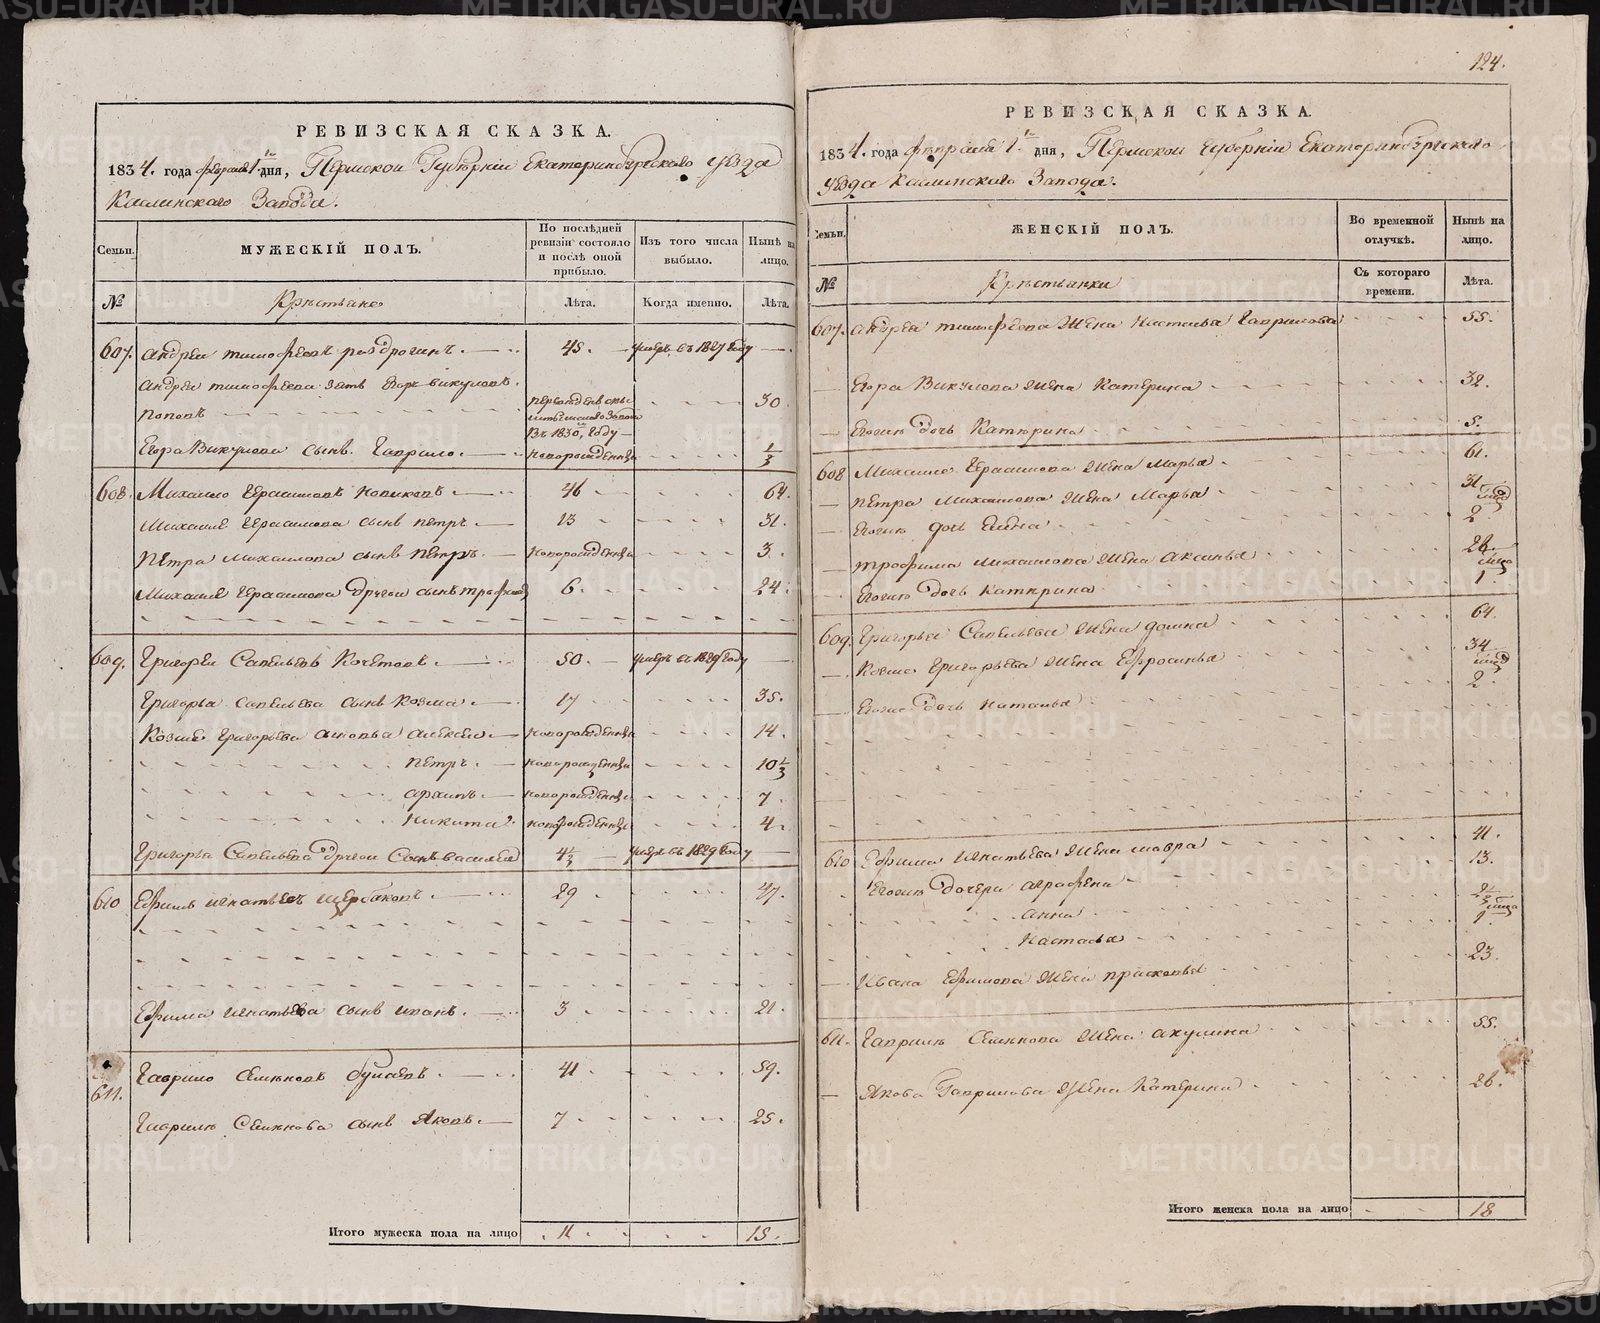 РЕВИЗСКАЯ СКАЗКА.
1834. года февраля 1 дня, Пермской Губерніи Екатеринбургскаго уезда
Каслинскаго Завода.
Семьи.
МУЖЕСКІЙ ПОЛЪ.
По послѣдней ревизіи состояло и послѣ оной прибыло.
Изъ того числа выбыло.
Нынѣ на лицо.
№
Крестьяне
Лѣта.
Когда именно.
Лѣта.
607. Андреи тимофеевъ 45. умеръ въ 1827 году
Андрея тимофеева зять Егоръ викуловъ
поповъ 30
въ 1830 году
Егора Викулова сынъ Гаврило новорожденъ 1/3
608. Михаило Герасимовъ Новиковъ 46 64.
Михаила Герасимова сынъ петръ 13 31.
Петра михаилова сынъ петръ новорожденъ 3.
Михаила Герасимова другои сынъ 6 24.
609. Григореи Савельевъ Кочетовъ 50. умеръ въ 1829 году
Григорья савельева сынъ Козма 17 35.
Козмы григорьева сыновья алексеи новорожденъ 14.
петръ новорожденъ 10 1/2
архипъ новорожденъ 7
Никита новорожденъ 4.
Григорья Савельева другои Сынъ василеи 4 1/2 умеръ въ 1829 году
610 Ефимъ игнатьевъ щербаковъ 29 47.
Ефима игнатьева сынъ иванъ 3 21.
611. Гаврило Семеновъ 41 59.
Гаврила Семенова сынъ Яковъ 7 25.
Итого мужеска пола на лицо 11 15.
124.
РЕВИЗСКАЯ СКАЗКА.
1834. года февраля 1 дня, Пермской Губерніи Екатеринбургскаго
уезда Каслинскаго Завода.
Семьи.
ЖЕНСКІЙ ПОЛЪ.
Во временной отлучкѣ.
Нынѣ на лицо.
№
Крестьянки
Съ котораго времени.
Лѣта.
607. Андрея тимофеева Жена Настасья Гаврилова 55.
Егора Викулова жена Катерина 32.
Егоже дочь Катерина 5.
608 Михаила Герасимова жена Марья 61.
петра михаилова жена Марья 31
Егоже дочь 2
трофима михаилова жена аксинья 26
Егоже дочь Катерина 1
609. Григорья Савельева жена домна 64.
Козмы Григорьева жена Ефросинья 34
Егоже дочь наталья 2
610 Ефима игнатьева жена мавра 41.
Егоже дочери аграфена 13.
анна
Настасья
Ивана Ефимова жена прасковья 23.
611. Гаврила Семенова жена акулина 55.
Якова Гаврилова жена Катерина 26.
Итого женска пола на лицо 18
METRIKI.GASO-URAL.RU